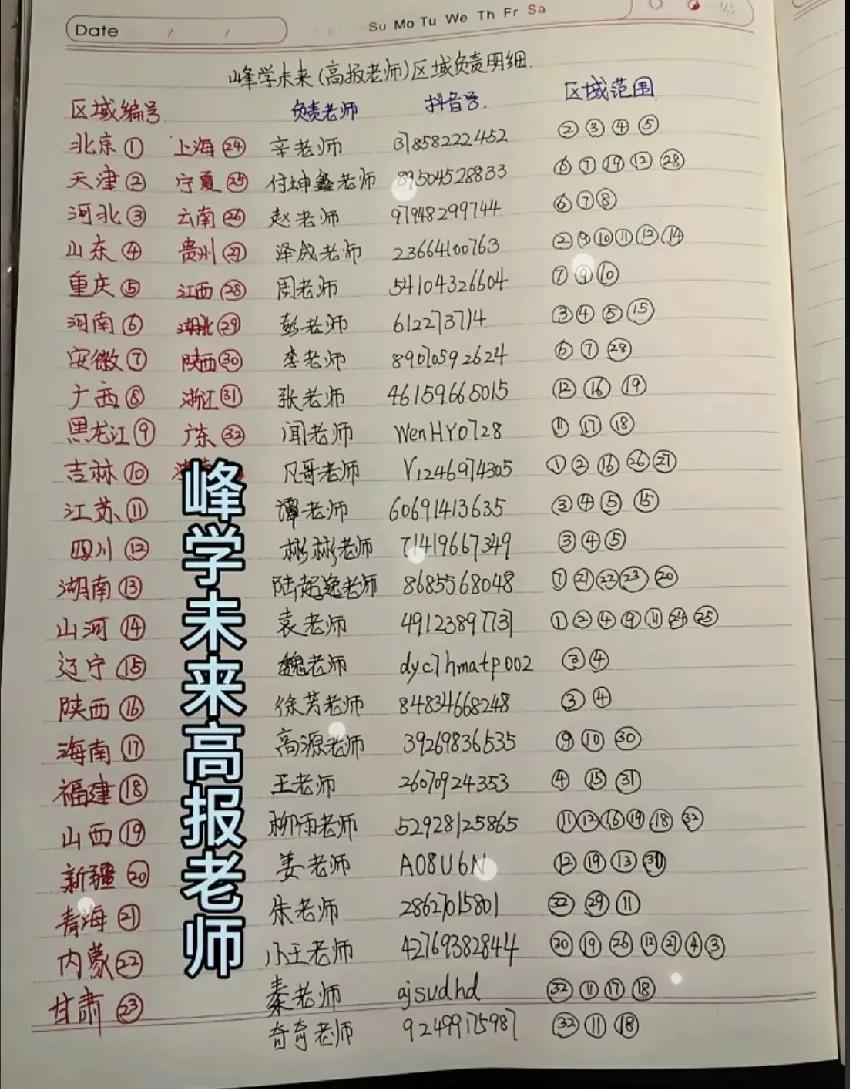 Date / / Su Mo Tu We Th Fr Sa
峰学未来(高报老师)区域负责明细
区域编号 负责老师 抖音号 区域范围
北京① 上海㉔ 辛老师 31858222452 ②③④⑤
天津② 宁夏㉕ 付坤鑫老师 89504528833 ⑥⑦⑲⑫㉘
河北③ 云南㉖ 赵老师 97948299744 ⑥⑦⑧
山东④ 贵州㉗ 泽成老师 23664100763 ②⑨⑩⑪⑬⑭
重庆⑤ 江西㉘ 周老师 54104326604 ⑦⑨⑩
河南⑥ 湖北㉙ 彭老师 612273714 ③④⑤⑮
安徽⑦ 陕西㉚ 李老师 89070592624 ⑥⑦㉘
广西⑧ 浙江㉛ 张老师 46159665015 ⑫⑯⑲
黑龙江⑨ 广东㉜ 闻老师 WenHY0728 ⑪⑰⑱
吉林⑩ 凡哥老师 Y1246974305 ①②⑯㉖㉗
江苏⑪ 谭老师 60691413635 ③④⑤⑮
四川⑫ 彬彬老师 71419667349 ③④⑤
湖南⑬ 陆超逸老师 8685568048 ⑦㉑㉒㉓⑳
山河⑭ 袁老师 49123897731 ①②④⑨⑪㉔㉕
辽宁⑮ 魏老师 dyc7hmatp002 ③④
陕西⑯ 徐芳老师 84834668248 ③④
海南⑰ 高源老师 39269836535 ⑨⑩㉚
福建⑱ 王老师 26070924353 ④⑮㉛
山西⑲ 柳雨老师 52928125865 ⑪⑫⑯⑲⑱㉜
新疆⑳ 姜老师 A08U6N ⑫⑲⑬㉚
青海㉑ 朱老师 28627015801 ㉜㉙⑪
内蒙㉒ 小王老师 42769382844 ⑳⑲㉖⑫㉗④③
甘肃㉓ 秦老师 ajsudhd ㉜⑪⑰⑱
奇奇老师 92499175987 ㉜⑪⑱
峰学未来高报老师